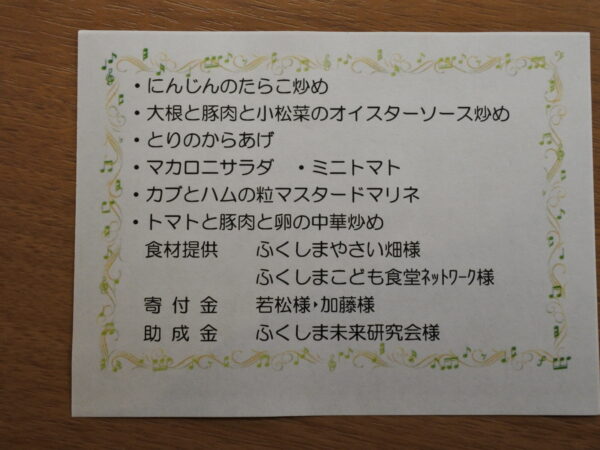 ・にんじんのたらこ炒め
・大根と豚肉と小松菜のオイスターソース炒め
・とりのからあげ
・マカロニサラダ ・ミニトマト
・カブとハムの粒マスタードマリネ
・トマトと豚肉と卵の中華炒め
食材提供 ふくしまやさい畑様
ふくしまこども食堂ﾈｯﾄﾜｰｸ様
寄付金 若松様・加藤様
助成金 ふくしま未来研究会様